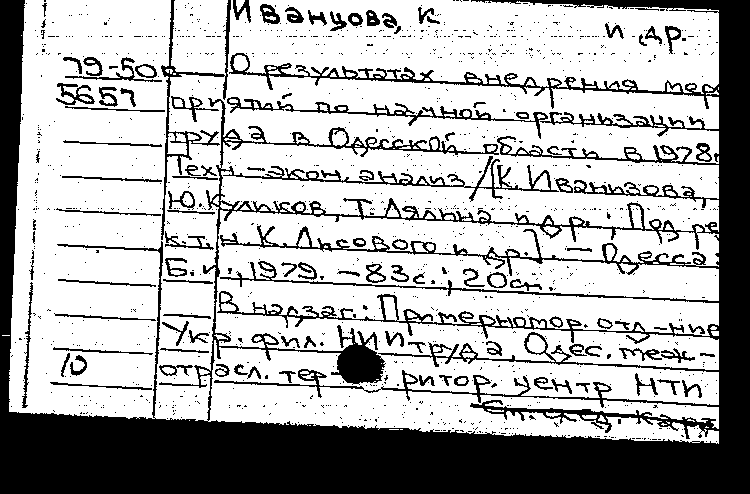 Иванцова, К
и др.
79-50к О результатах внедрения мер
5657 приятий по научной организации
труда в Одесской области в 1978г
Техн.-экон. анализ /[К. Иванизова,
Ю. Куликов, Т. Лялина и др.; Под ре
к.т.н. К. Лисового и др.]. — Одесса:
Б. и., 1979. – 83с.; 20см.
В надзаг.: Причерномор. отд-ние
Укр. фил. НИИ труда, Одес. меж-
10 отрасл. территор. центр НТИ
См. след. карт